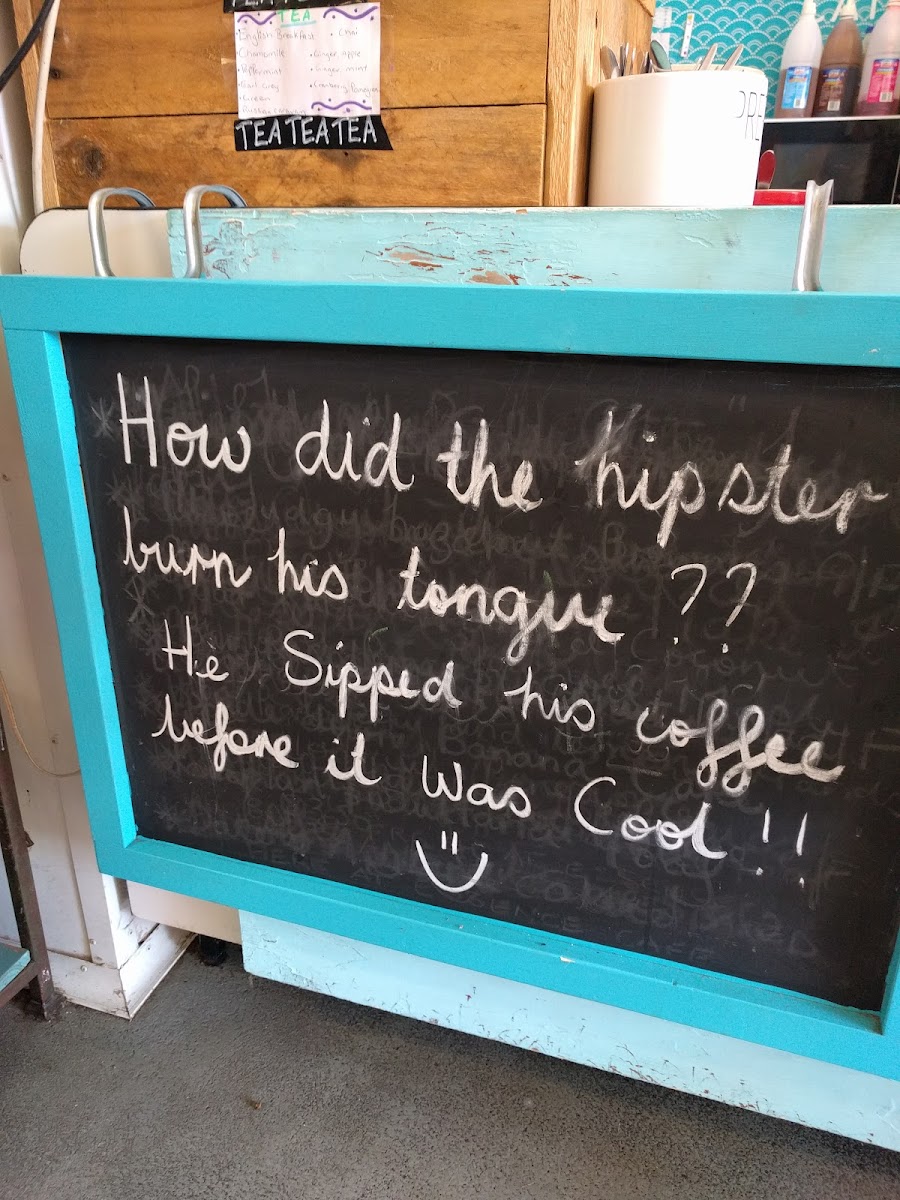 TEA
English Breakfast
• Chai
Chamomile
• Ginger apple
Peppermint
• Ginger mint
Earl Grey
• Cranberry
• Green
TEA TEA TEA
PRE
How did the hipster
burn his tongue ??
He Sipped his coffee
before it was Cool !!